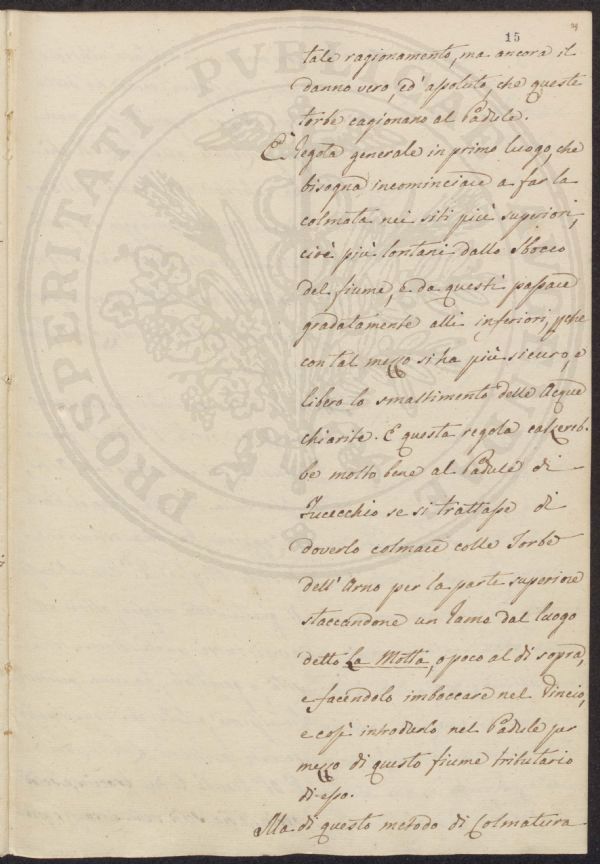 15
tale ragionamento, ma ancora il
danno vero, ed' assoluto, che queste
torbe cagionano al Padule.
E' Regola generale in primo luogo, che
bisogna incominciare a far la
colmata nei siti più superiori,
cioè più lontani dallo Sbocco
del fiume, e da questi passare
gradatamente alli inferiori, pche
con tal mezzo si ha più sicuro, e
libero lo smaltimento delle Acque
chiarite. E questa regola calzereb.
be molto bene al Padule di
Fucecchio se si trattasse di
doverlo colmare colle Torbe
dell' Arno per la parte superiore
staccandone un Ramo dal luogo
detto La Motta, o poco al di sopra,
e facendolo imboccare nel Vincio,
e così introdurlo nel Padule per
mezzo di questo fiume tributario
di esso.
Ma di questo metodo di Colmatura
PROSPERITATI PVBLICAE